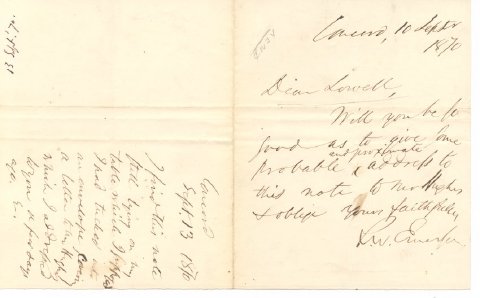 Concord, 10 Septr
1870
Dear Lowell,
Will you be so
good as to give some
probable and proximate address to
this note to Mr Hughes
& oblige yours faithfully
R. W. Emerson
Concord
Sept. 13 1870
I find this note
still lying on my
table which I supposed
I had tucked
an envelope
a letter to Mr Hughes
which I addressed
to you a few days
ago. E.
13 Sept, 70.